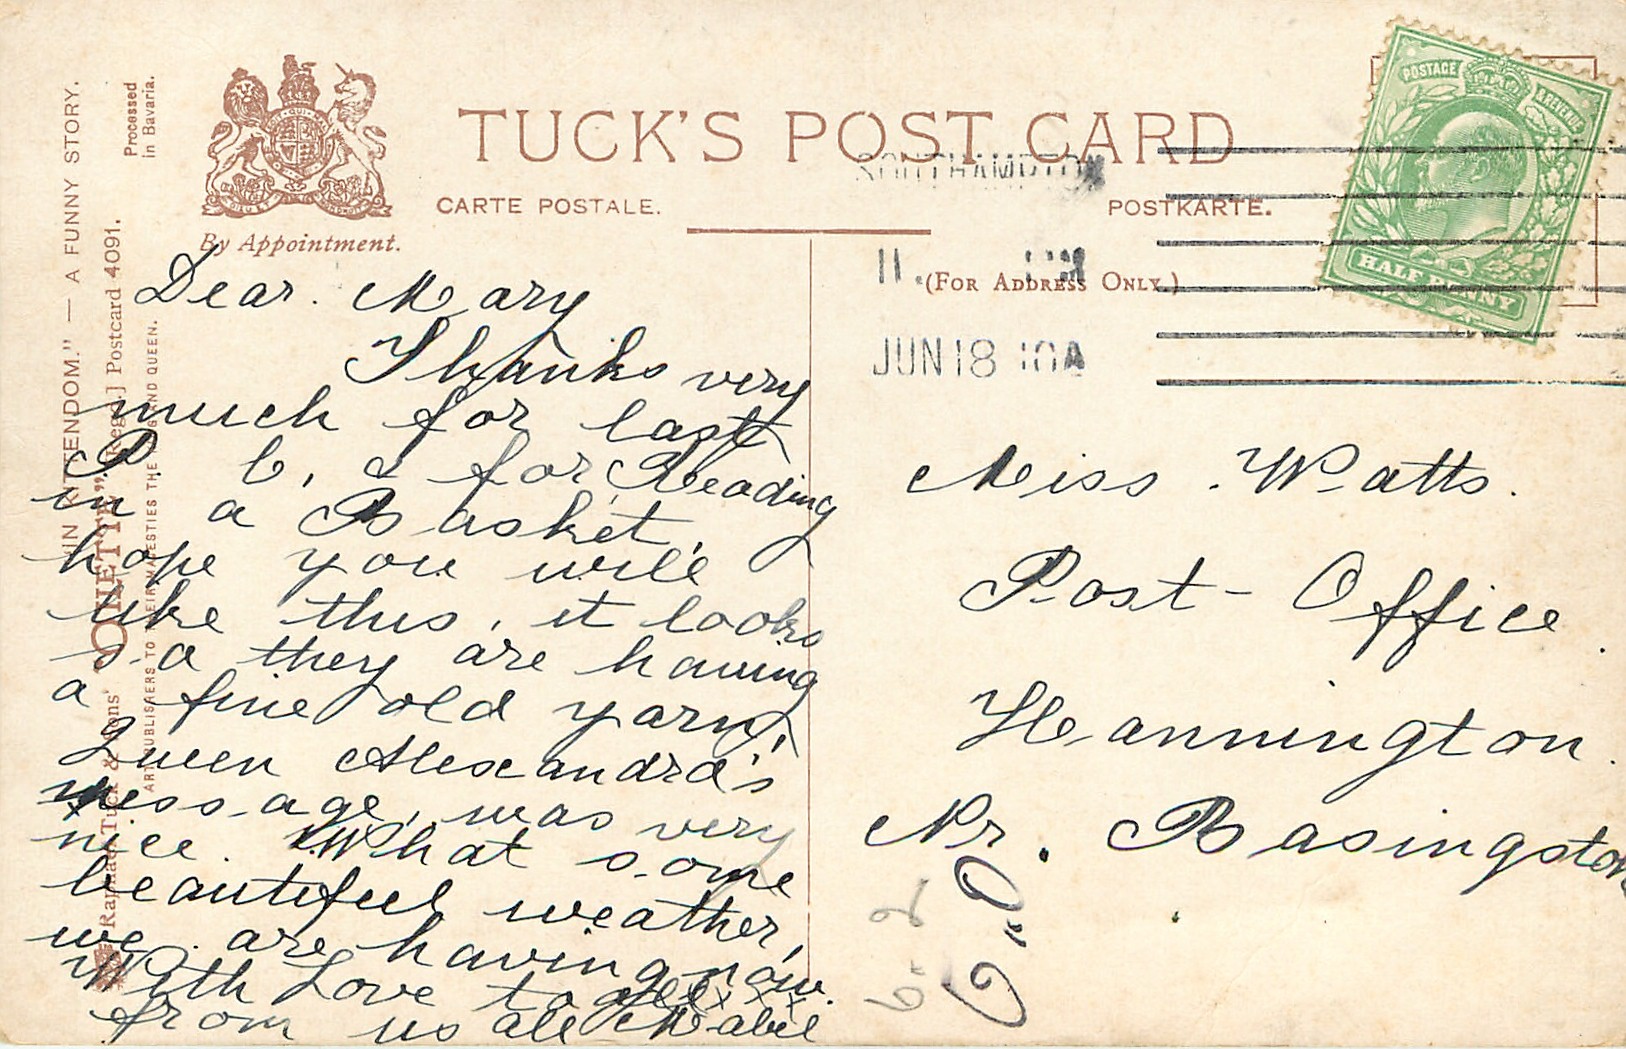 "IN KITTENDOM." — A FUNNY STORY.
Processed
in Bavaria.
Raphael Tuck & Sons' "OILETTE" [Regd.] Postcard 4091.
ART PUBLISHERS TO THEIR MAJESTIES THE KING AND QUEEN.
By Appointment.
TUCK'S POST CARD
CARTE POSTALE.
POSTKARTE.
(FOR ADDRESS ONLY.)
POSTAGE & REVENUE
HALF PENNY
SOUTHAMPTON
11. PM
JUN 18 10A
Dear. Mary
Thanks very
much for last
P. C, & for Reading
in a Basket,
hope you will
like this, it looks
so a they are having
a fine old yarn,
Queen Alexandra's
message, was very
nice. What some
beautiful weather,
we are having now.
With Love to all x x x x
from us all Mabel
Miss. Watts.
Post-Office
Hannington.
Nr. Basingstoke
6-2